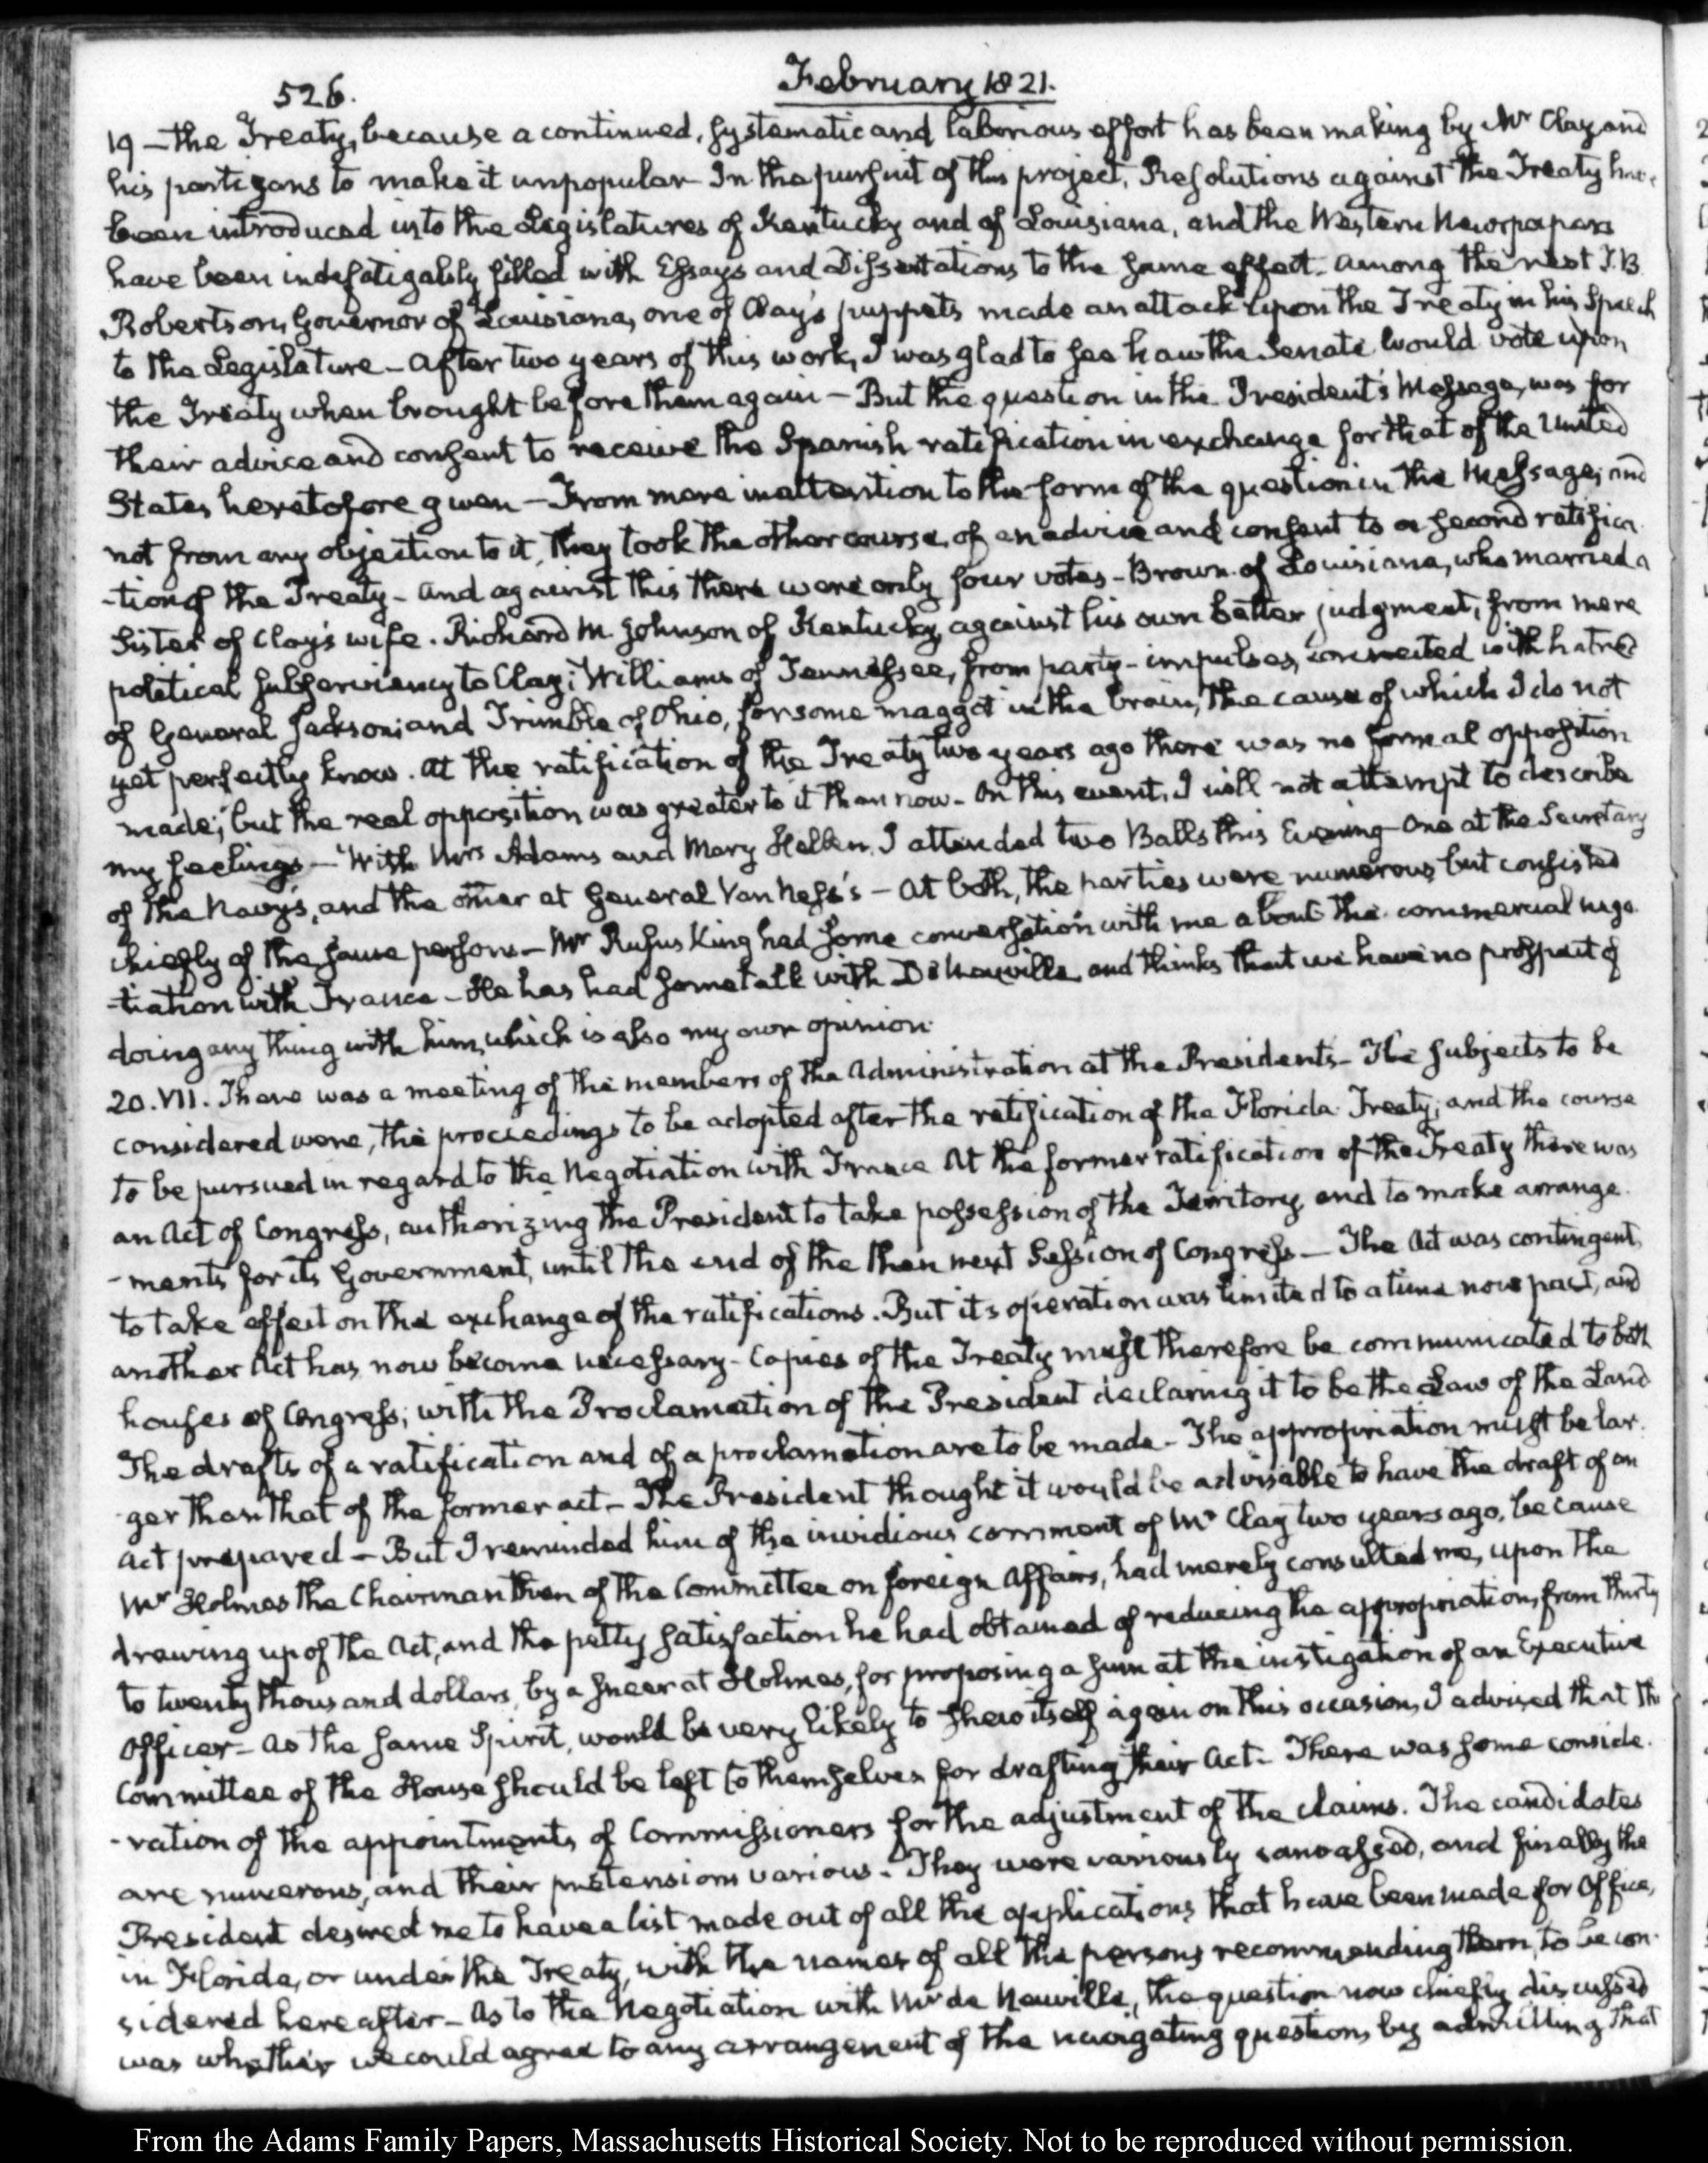 526.
February 1821.
19 – the Treaty, because a continued, systematic and laborious effort has been making by Mr Clay and
his partizans to make it unpopular. In the pursuit of this project, Resolutions against the Treaty have
been introduced into the Legislatures of Kentucky and of Louisiana, and the Western Newspapers
have been indefatigably filled with Essays and Dissertations to the same effect. Among the rest T. B.
Robertson, Governor of Louisiana, one of Clay's puppets made an attack upon the Treaty in his Speech
to the Legislature – After two years of this work, I was glad to see how the Senate would vote upon
the Treaty when brought before them again – But the question in the President's Message, was for
their advice and consent to receive the Spanish ratification in exchange for that of the United
States heretofore given – From mere inattention to the form of the question in the Message, and
not from any objection to it, they took the other course, of an advice and consent to a second ratifica
-tion of the Treaty – And against this there were only four votes – Brown of Louisiana, who married a
Sister of Clay's wife. Richard M. Johnson of Kentucky, against his own better judgment, from mere
political subserviency to Clay; Williams of Tennessee, from party-impulses, connected with hatred
of General Jackson; and Trimble of Ohio, for some maggot in the brain, the cause of which I do not
yet perfectly know. At the ratification of the Treaty two years ago there was no formal opposition
made; but the real opposition was greater to it than now – On this event, I will not attempt to describe
my feelings – With Mrs Adams and Mary Hellen, I attended two Balls this Evening – One at the Secretary
of the Navy's, and the other at General Van Ness's – At both, the parties were numerous, but consisted
chiefly of the same persons – Mr Rufus King had some conversation with me about the commercial nego
-tiation with France – He has had some talk with De Neuville, and thinks that we have no prospect of
doing any thing with him, which is also my own opinion.
20. VII. There was a meeting of the members of the Administration at the Presidents – The subjects to be
considered were, the proceedings to be adopted after the ratification of the Florida Treaty; and the course
to be pursued in regard to the Negotiation with France. At the former ratification of the Treaty there was
an Act of Congress, authorizing the President to take possession of the Territory, and to make arrange
-ments for its Government, until the end of the then next Session of Congress – The Act was contingent,
to take effect on the exchange of the ratifications. But its operation was limited to a time now past, and
another Act has now become necessary – Copies of the Treaty must therefore be communicated to both
houses of Congress; with the Proclamation of the President declaring it to be the Law of the Land
The drafts of a ratification and of a proclamation are to be made – The appropriation must be lar
-ger than that of the former act – The President thought it would be advisable to have the draft of an
Act prepared – But I reminded him of the invidious comment of Mr Clay two years ago, because
Mr Holmes the Chairman then of the Committee on foreign Affairs, had merely consulted me, upon the
drawing up of the Act, and the petty satisfaction he had obtained of reducing the appropriation, from thirty
to twenty thousand dollars, by a sneer at Holmes, for proposing a sum at the instigation of an Executive
Officer – As the same Spirit, would be very likely to shew itself again on this occasion, I advised that the
Committee of the House should be left to themselves for drafting their Act. There was some conside
-ration of the appointments of Commissioners for the adjustment of the claims. The candidates
are numerous, and their pretensions various – They were variously canvassed, and finally the
President desired me to have a list made out of all the applications that have been made for Office,
in Florida, or under the Treaty, with the names of all the persons recommending them, to be con
sidered hereafter – As to the Negotiation with Mr de Neuville, the question now chiefly discussed
was whether we could agree to any arrangement of the navigating question, by admitting that
From the Adams Family Papers, Massachusetts Historical Society. Not to be reproduced without permission.